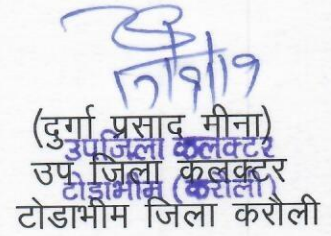 17/9/19
(दुर्गा प्रसाद मीना)
उपजिला कलक्टर
उप जिला कलक्टर
टोडाभीम (करौली)
टोडाभीम जिला करौली